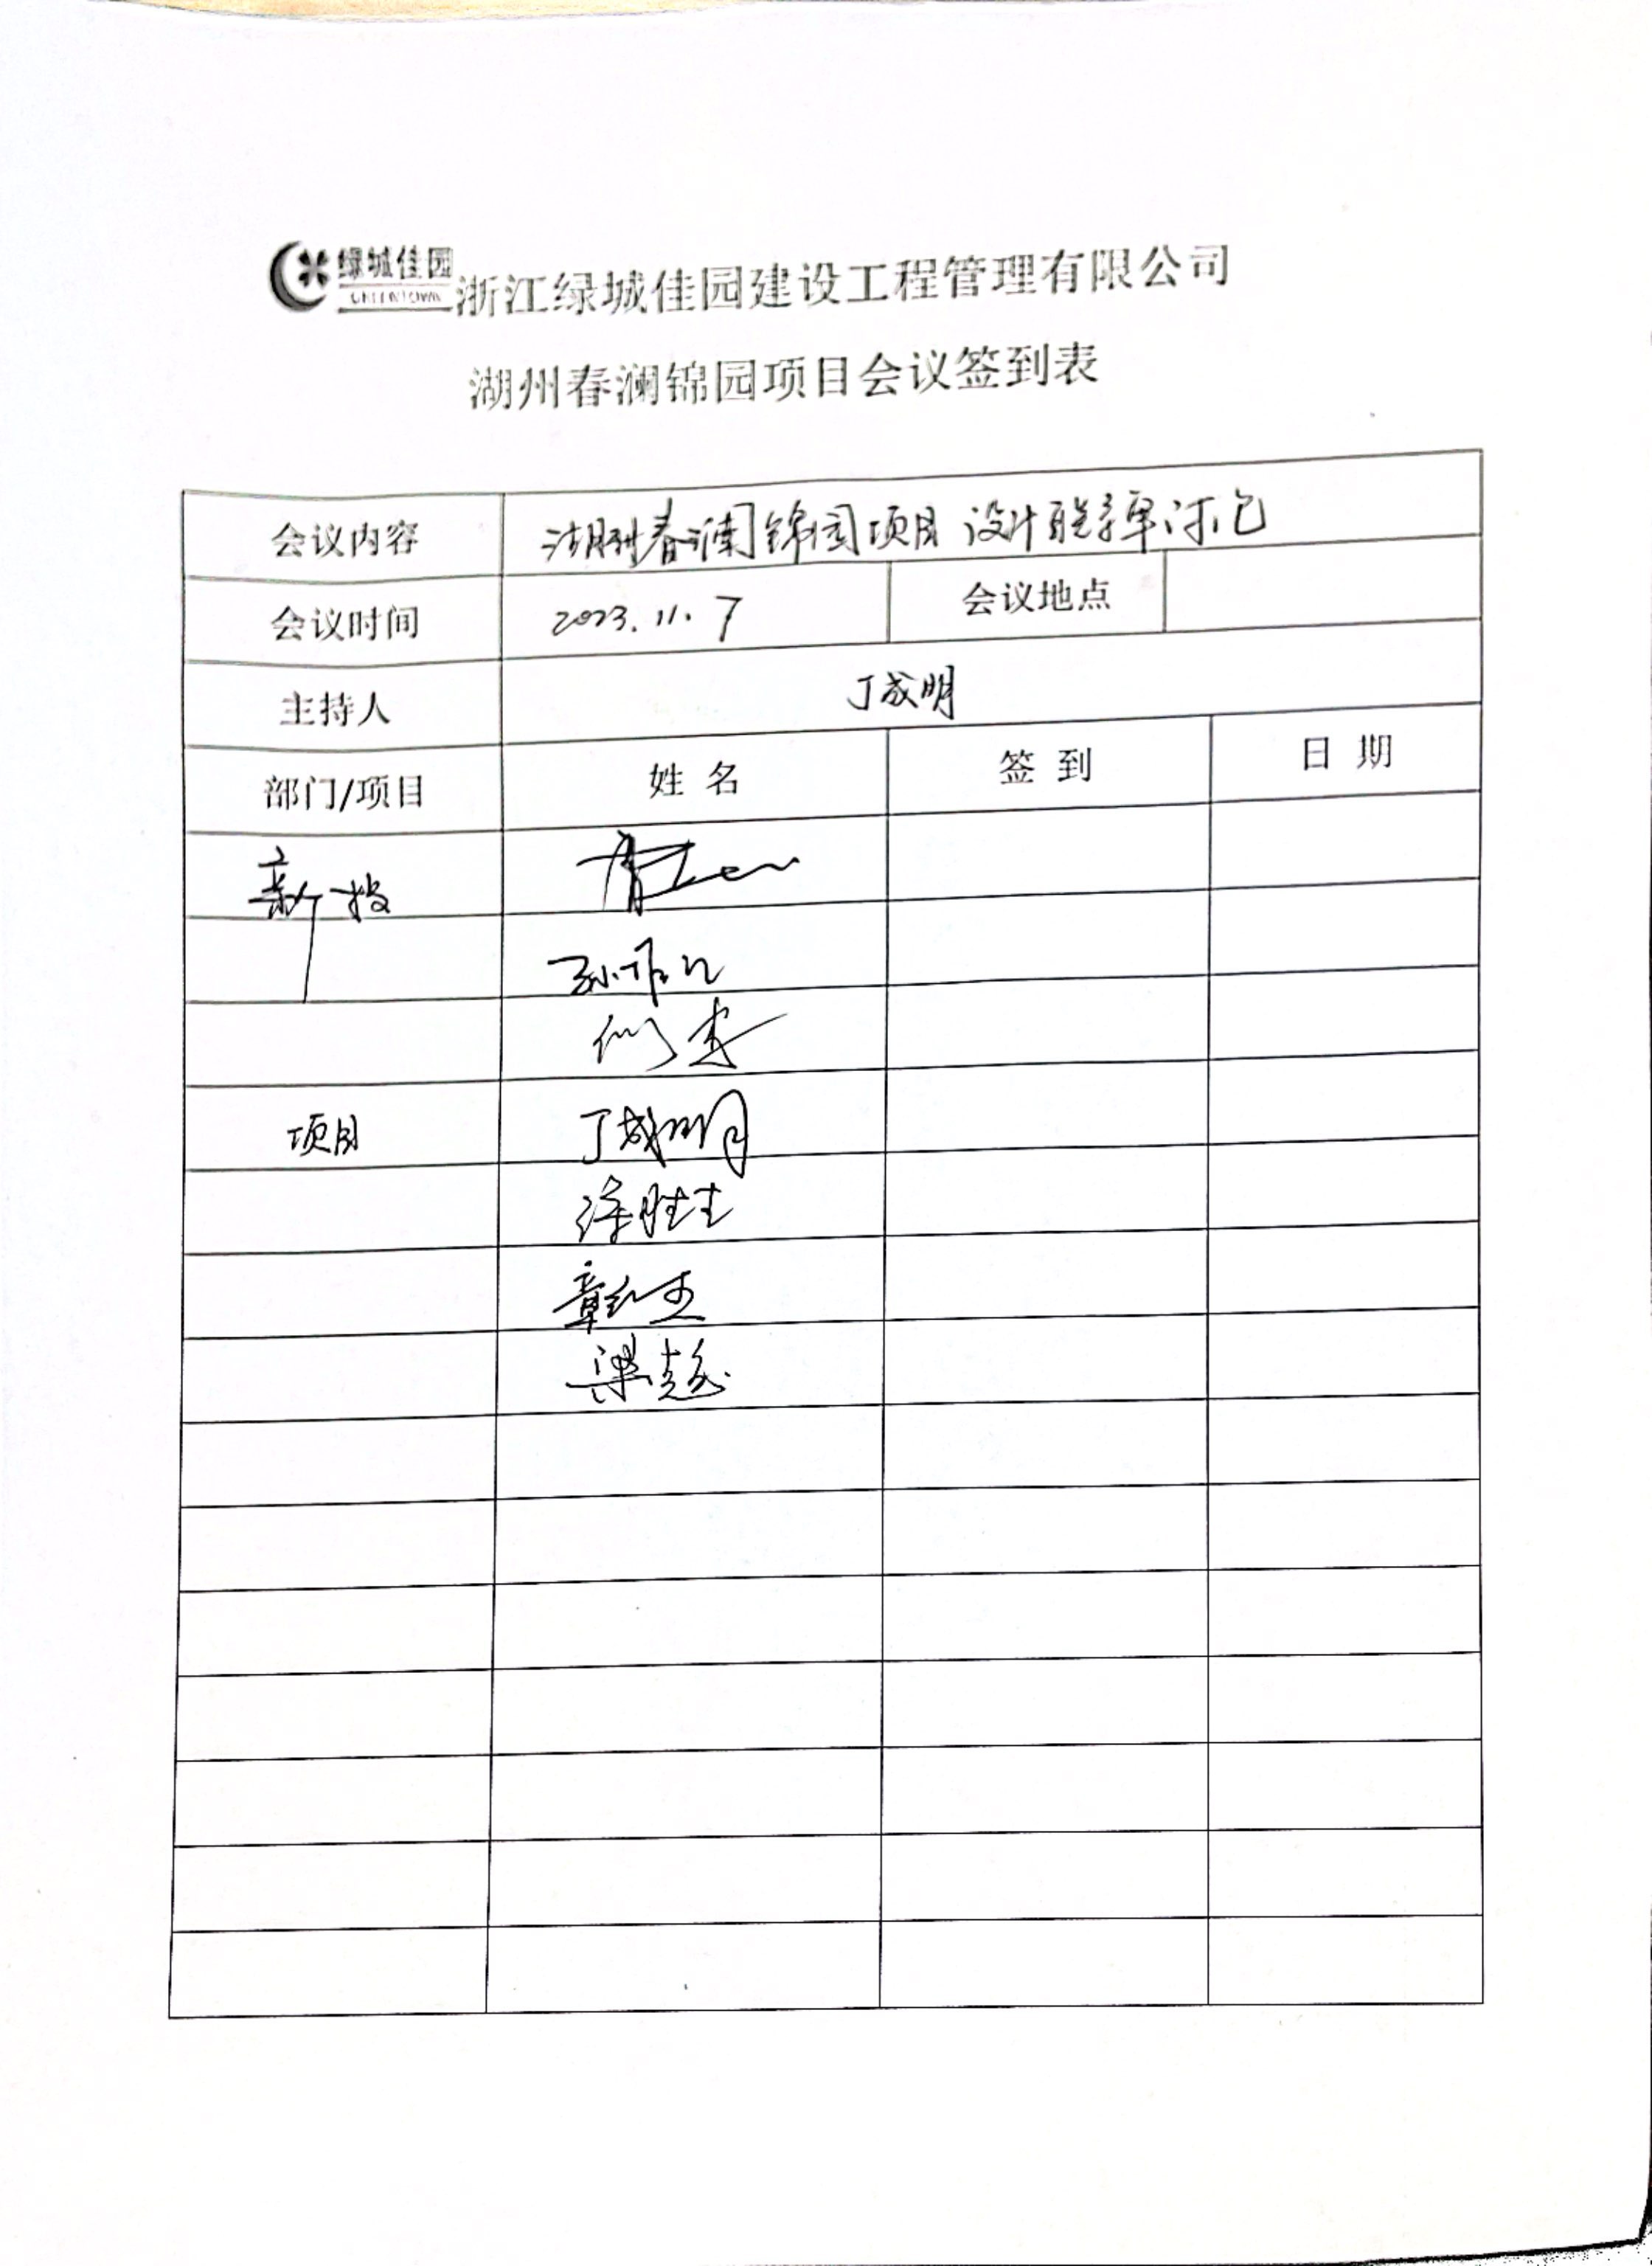 绿城佳园
GREENTOWN
浙江绿城佳园建设工程管理有限公司
湖州春澜锦园项目会议签到表
会议内容 湖州春澜锦园项目 设计联系单讨论
会议时间 2023.11.7 会议地点
主持人 丁成明
部门/项目 姓 名 签 到 日 期
新投
孙
项目 丁成明
徐胜
章红杰
梁慧